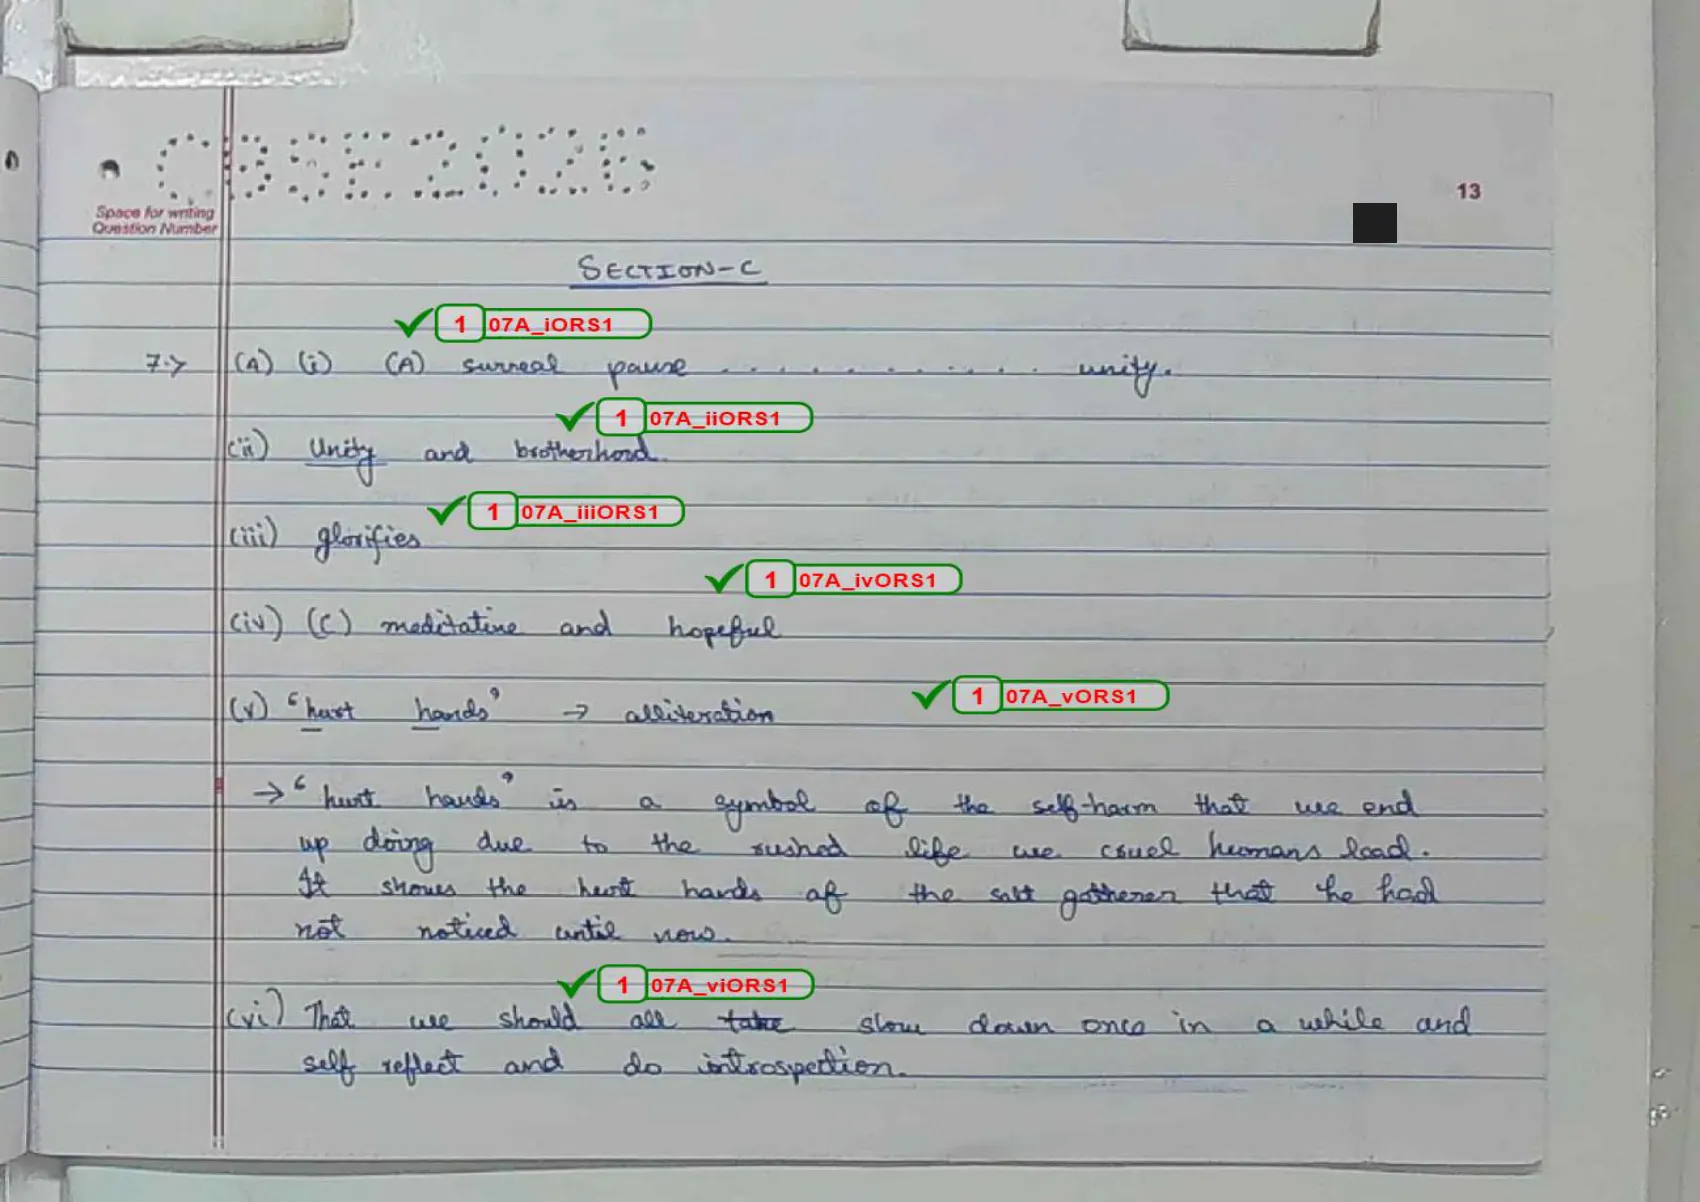 CBSE2026
Space for writing
Question Number
13
SECTION-C
1 07A_iORS1
7.> (A) (i) (A) surreal pause . . . . . . . . . . . unity.
1 07A_iiORS1
(ii) Unity and brotherhood.
1 07A_iiiORS1
(iii) glorifies
1 07A_ivORS1
(iv) (C) meditative and hopeful
1 07A_vORS1
(v) 'hurt hands' → alliteration
→ 'hurt hands' is a symbol of the self-harm that we end
up doing due to the rushed life we cruel humans lead.
It shows the hurt hands of the salt gatherer that he had
not noticed until now.
1 07A_viORS1
(vi) That we should all take slow down once in a while and
self reflect and do introspection.